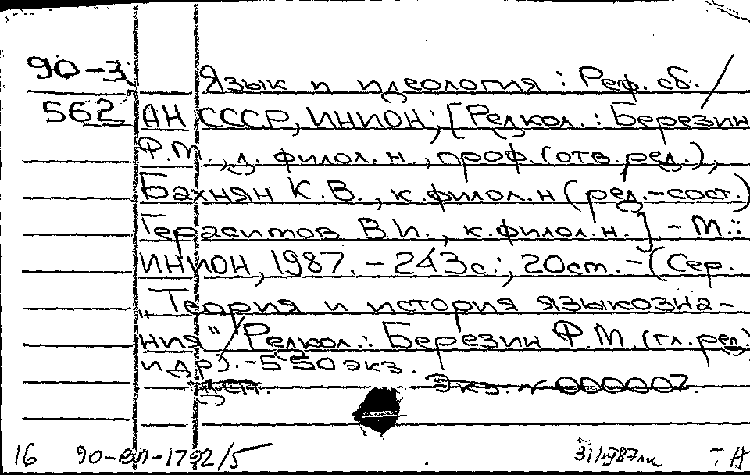 90-3 Язык и идеология : Реф. сб. /
562 АН СССР, ИНИОН; [Редкол. : Березин
Ф.М., д. филол. н., проф. (отв. ред.),
Бахнян К.В., к. филол. н (ред.-сост.)
Герасимов В.И., к. филол. н.] - М.:
ИНИОН, 1987. - 243 с.; 20 см. - (Сер.
„Теория и история языкозна-
ния" / Редкол.: Березин Ф.М. (гл. ред.)
и др). - 550 экз.
Экз. № 000007.
16 90-